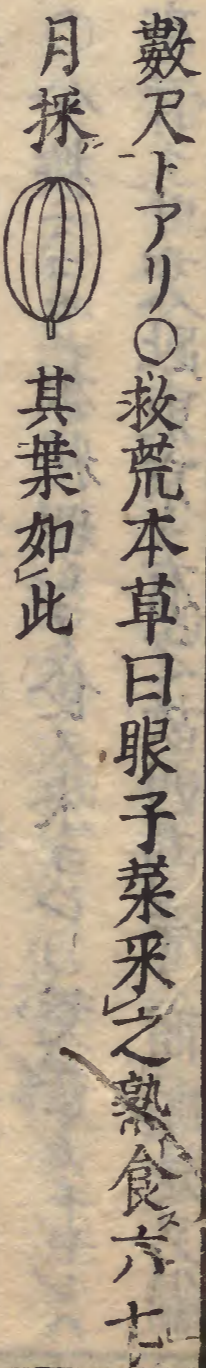 數尺トアリ○救荒本草曰眼子菜采レ之熟食ス六七
月採ル其葉如レ此